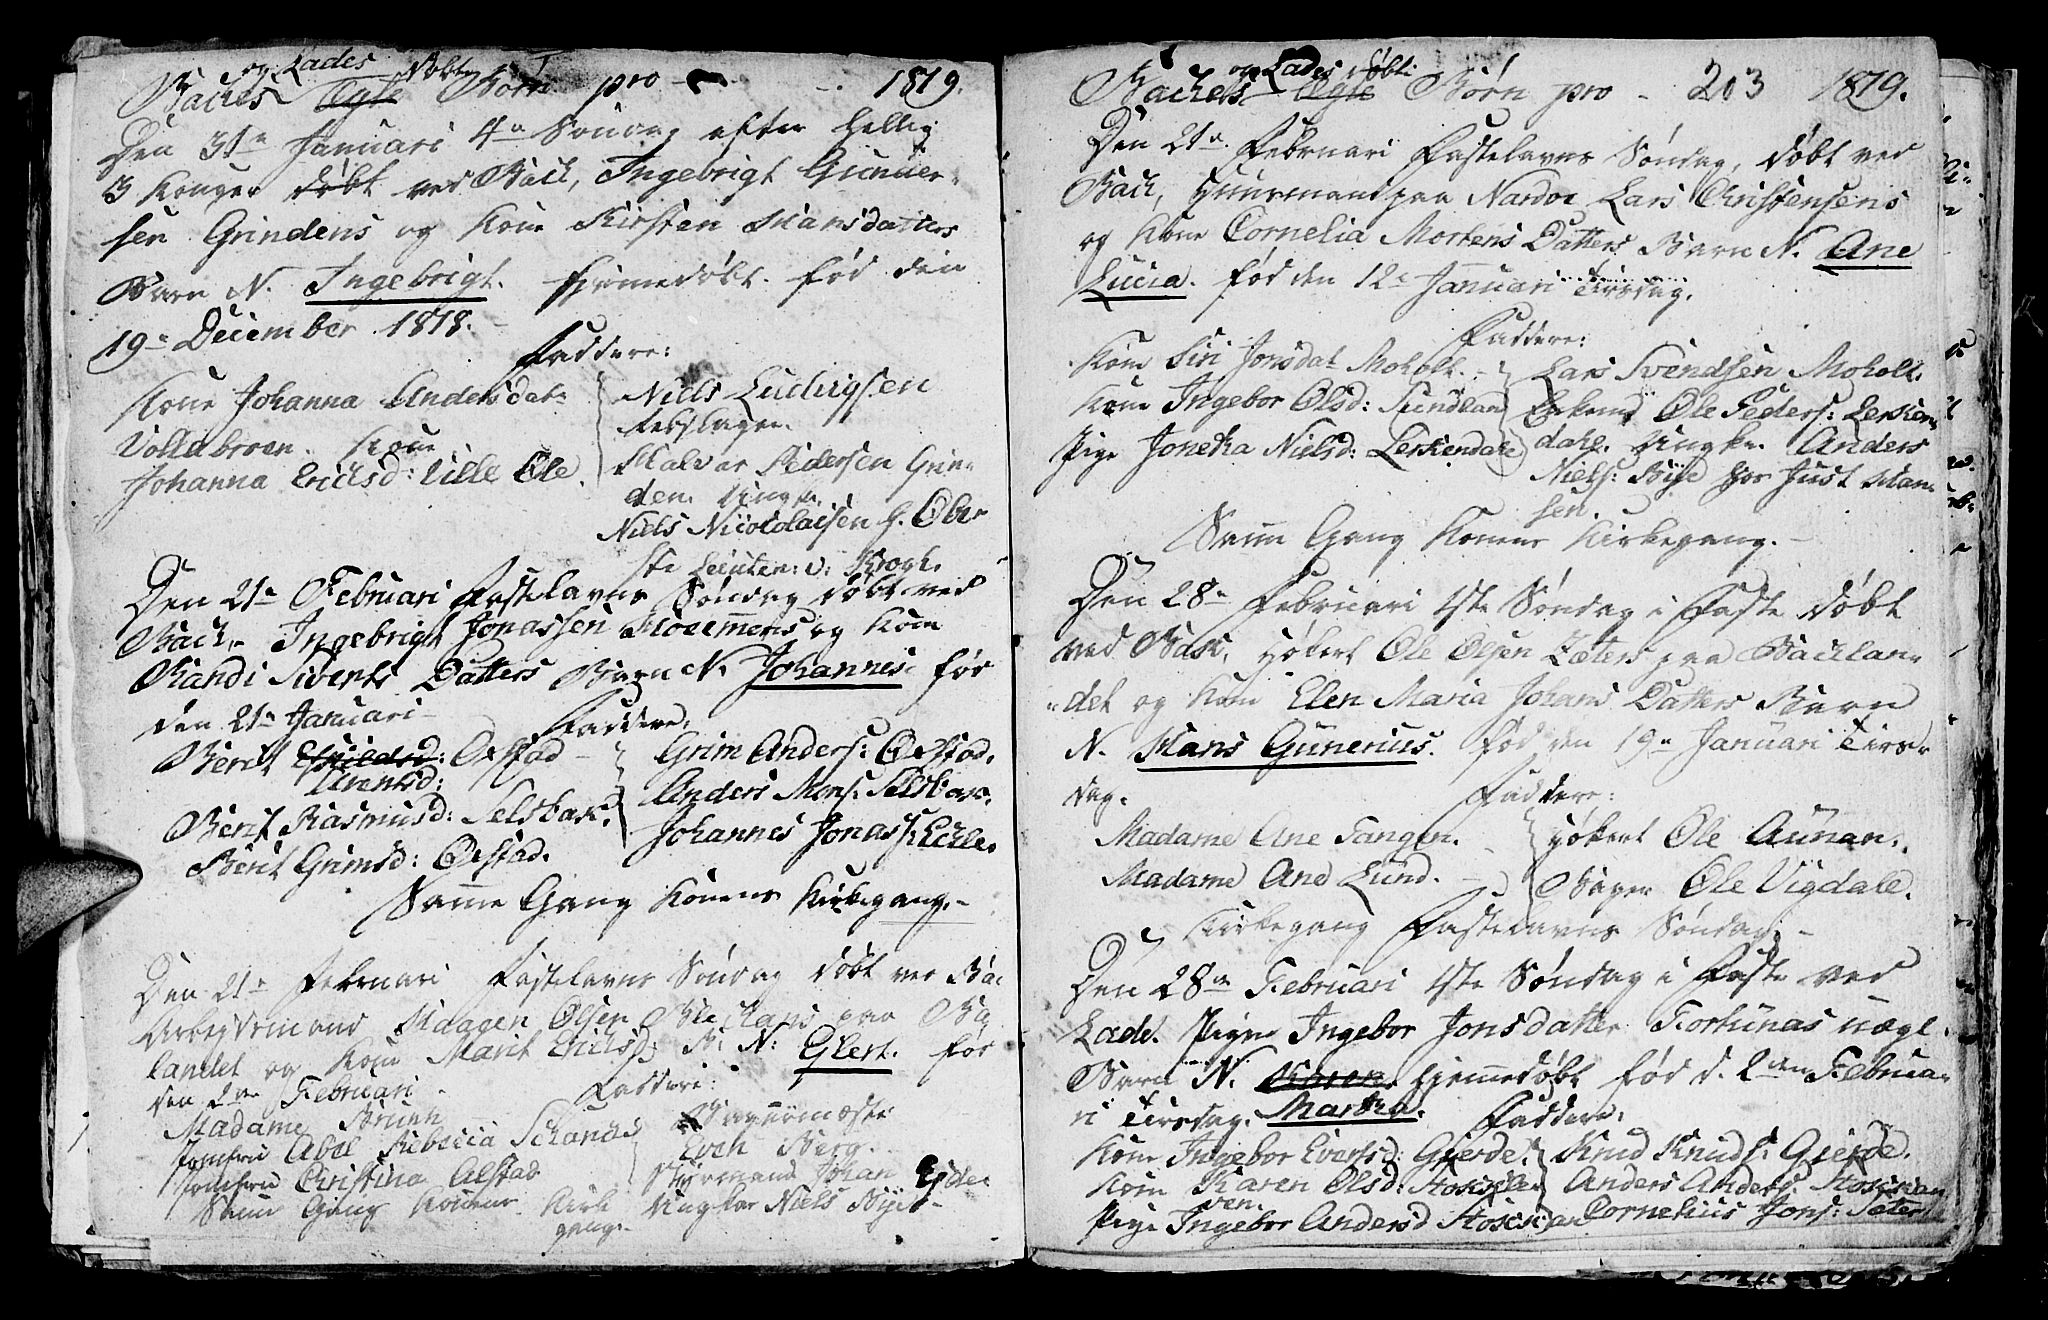 og Lades døbte
Backes Ægte Börn pro 1819.
Den 31te Januari 4de Söndag efter hellig
3 Konger döbt ved Back, Ingebrigt Gunner-
sen Grindens og Kone Kirsten Hansdatters
Barn N. Ingebrigt. hjemedöbt. föd den
19de December 1818.
Faddere:
Kone Johanna Andersdat:
Vollabroen. Kone
Johanna Ericksd: Lille Øle.
Niels Ludvigsen
Rebslager.
Halvor Pedersen Grin-
den. Ungk.
Niels Nicolaisen h. Ober-
ste Leuten: v: Krogh.
Den 21de Februari Fastelavns Söndag döbt ved
Back, Ingebrigt Jonassen Moeemens og Kone
Randi Siverts Datters Barn N. Johannes. föd
den 21de Januari
Faddere:
Berit Ericksd: Øxstad
Arentsd:
Berit Rasmusd: Selsbak.
Berit Grimsd: Øxstad.
Grim Anders: Øxstad.
Anders Mons: Selsbak.
Johannes Jonass: Eckle.
Samme Gang Konens Kirkegang.
Den 21de Februari Fastelavns Söndag döbt ved Bac
Arbejdsmand Haagen Olsen paa Ba
landet og Kone Marit Ericksd: B. N: Glert. föd
den 2den Februari
Faddere:
Madame Bruun
Jomfru Abel Rebecca Schandi
Jomfru Christina Alstad
Bagermester
Evch Berg.
Styrmand Johan Ejde.
Ungkar Niels Bye
Samme Gang Konens Kirke
gang.
og Lades döbte
Backes Ægte Börn pro 203 1819.
Den 21de Februari Fastelavns Söndag, döbt ved
Back, Huusmand paa Nardoe Lars Christensens
og Kone Cornelia Mortens Datters Barn N. Ane
Lucia. föd den 12te Januari Tirsdag.
Faddere:
Kone Siri Jonsdat Moholt.
Kone Ingebor Olsd: Sundland
Pige Jonetta Nielsd: Lerkendale
Lars Svendsen Moholt.
Enkemd Ole Peders: Lerken-
dahl. Ungk. Anders
Niels: Bye hos Just Han-
sen.
Samme Gang Konens Kirkegang.
Den 28de Februari 1ste Söndag i Faste döbt
ved Back, Hökert Ole Olsen Sæters paa Backlan-
det og Kone Elen Maria Johans Datters Barn
N. Hans Gunerius. föd den 19de Januari Tirs-
dag.
Faddere:
Madame Ane Tangen.
Madame Ane Lund.
Hökert Ole Aunan.
Bager Ole Vigdale.
Kirkegang Fastelavns Söndag.
Den 28de Februari 1ste Söndag i Faste ved
Lade. Pigen Ingebor Jonsdatter Forthunas uægt.
Barn N. Karen hjemmedöbt föd d. 2den Februa-
ri Tirsdag. Martha. Faddere:
Kone Ingebor Evertsd: Gjerde.
Kone Karen Olsd: Hoxskar
ven.
Pige Ingebor Andersd Hoxskar
Knud Knuds: Gjerde.
Anders Anders: Hoxskar
Cornelius Jons: Sæter